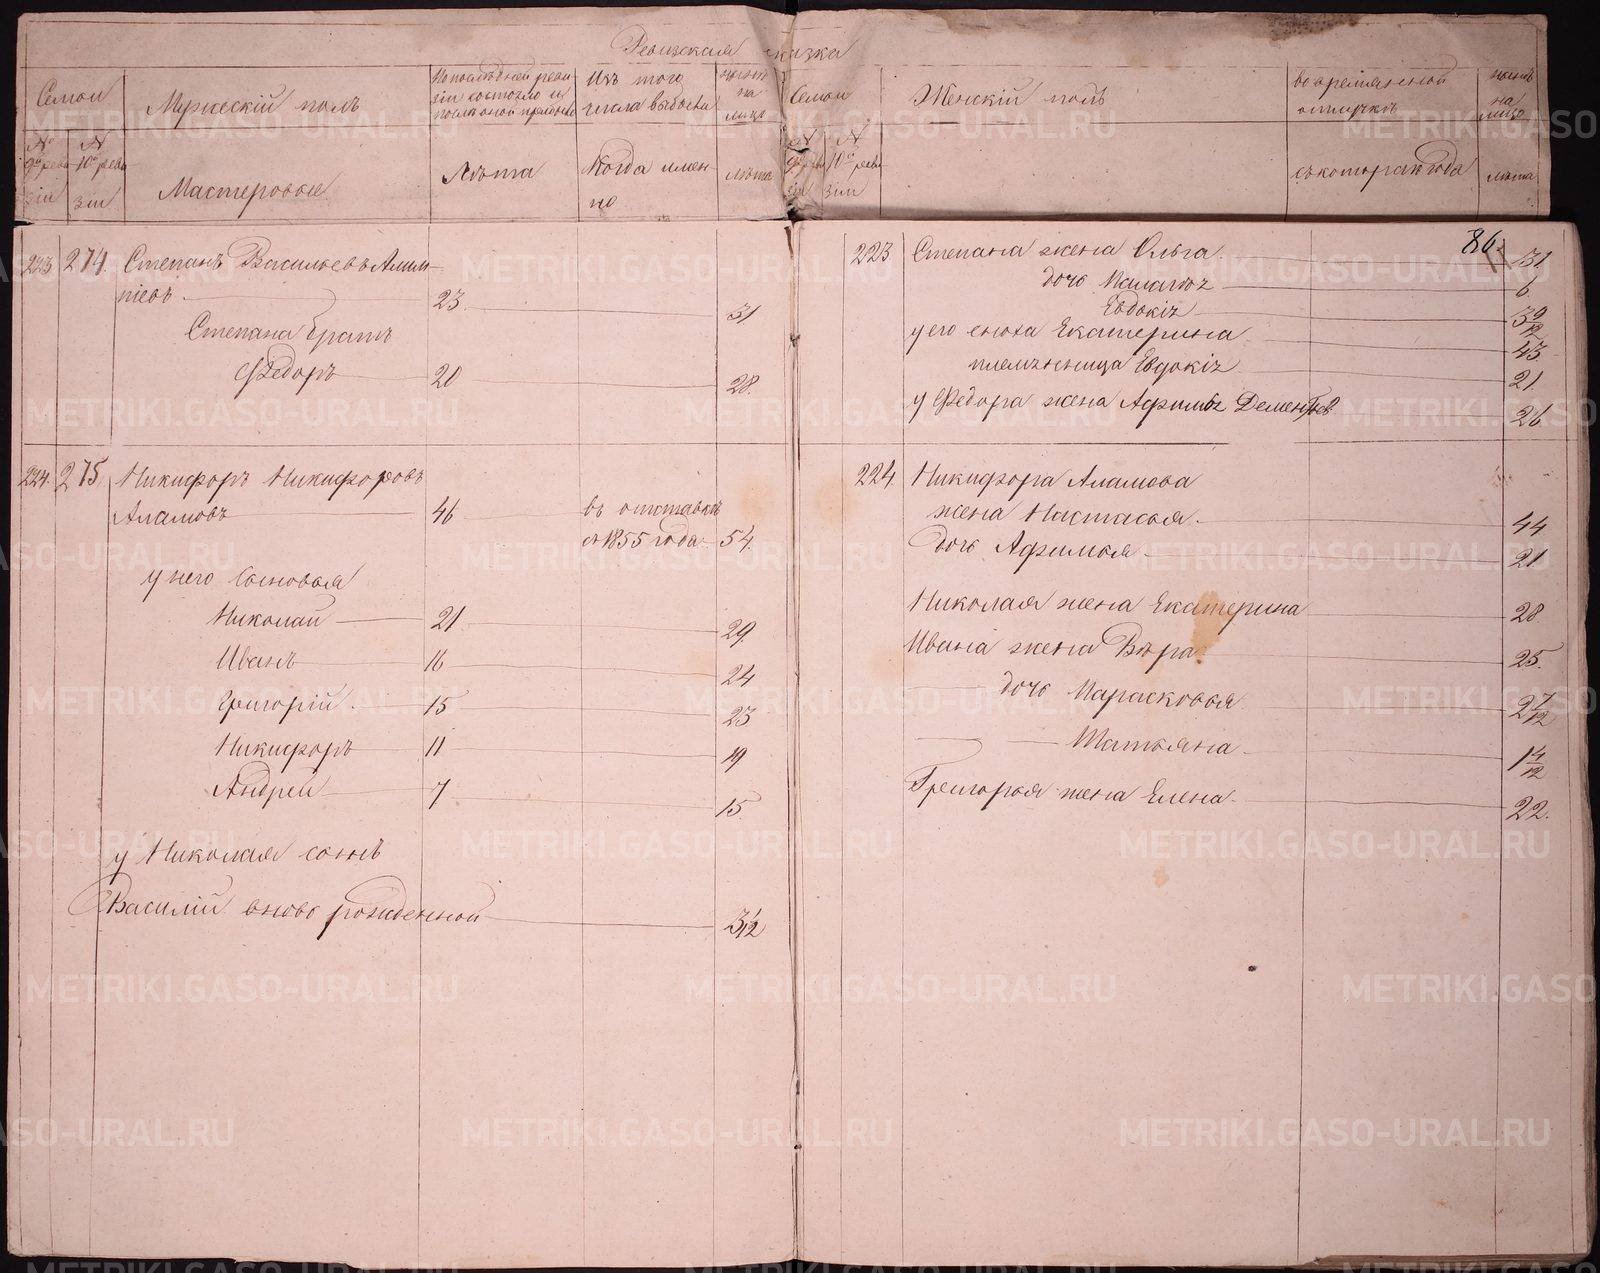 Ревизская сказка
Семьи
Мужескій полъ
По послѣдней реви
зіи состояло и
послѣ оной прибыло
Изъ того
числа выбыло
нынѣ
на
лицо
№
9й реви
зіи
№
10й реви
зіи
Мастеровые
Лѣта
Когда имен
но
лѣта
223 274. Степанъ Васильевъ
23. 31
Степана братъ
Федоръ 20 28.
224. 275 Никифоръ Никифоровъ
Аламовъ 46 въ отставкѣ
съ 1855 года 54.
у него сыновья
Николай 21 29.
Иванъ 16 24
Григорій 15 23
Никифоръ 11 19
Андрей 7 15.
у Николая сынъ
Василій вновь рожденной 3/12
Семьи
Женскій полъ
во временной
отлучкѣ
нынѣ
на
лицо
№
9й реви
зіи
№
10й реви
зіи
съ котораго года
лѣта
86.
223 Степана жена Ольга 31
дочь Маланья 6.
Евдокія 3 9/12
у его сноха Екатерина 43.
племянница Евдокія 21
у Федора жена Афимья 26
224. Никифора Аламова
жена Настасья 44
дочь Афимья 21
Николая жена Екатерина 28
Ивана жена Вѣра 25.
дочь Парасковья 2 7/12
Татьяна 1 4/12
Григорья жена Елена 22.
METRIKI.GASO-URAL.RU